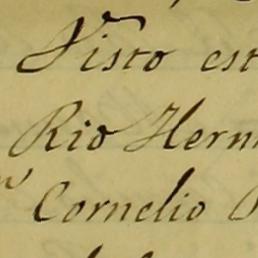 Visto est
Rio Hern
Cornelio